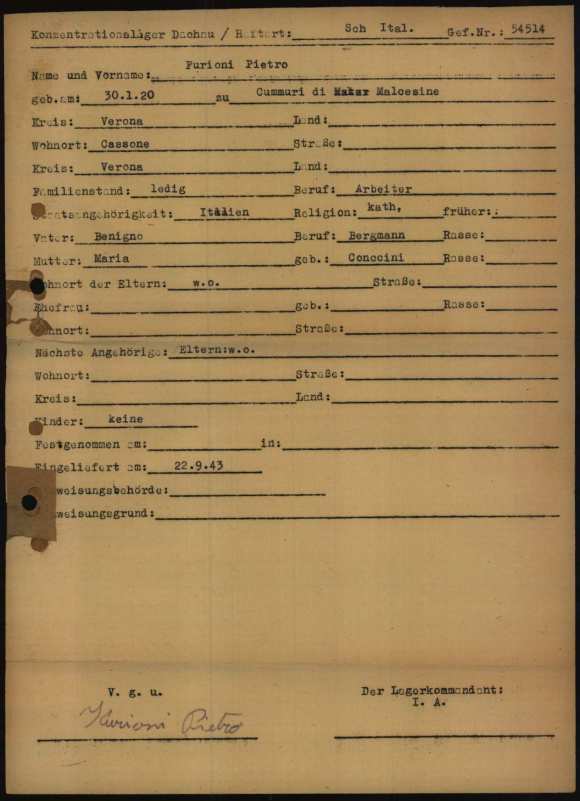 Konzentrationslager Dachau / Haftart: Sch Ital. Gef.Nr.: 54514
Name und Vorname: Furioni Pietro
geb.am: 30.1.20 zu Cummuri di Malcesine
Kreis: Verona Land:
Wohnort: Cassone Straße:
Kreis: Verona Land:
Familienstand: ledig Beruf: Arbeiter
Staatsangehörigkeit: Italien Religion: kath, früher:
Vater: Benigno Beruf: Bergmann Rasse:
Mutter: Maria geb.: Conccini Rasse:
Wohnort der Eltern: w.o. Straße:
Ehefrau: geb.: Rasse:
Wohnort: Straße:
Nächste Angehörige: Eltern:w.o.
Wohnort: Straße:
Kreis: Land:
Kinder: keine
Festgenommen am: in:
Eingeliefert am: 22.9.43
weisungsbehörde:
weisungsgrund:
V. g. u. Der Lagerkommandant:
I. A.
Furioni Pietro